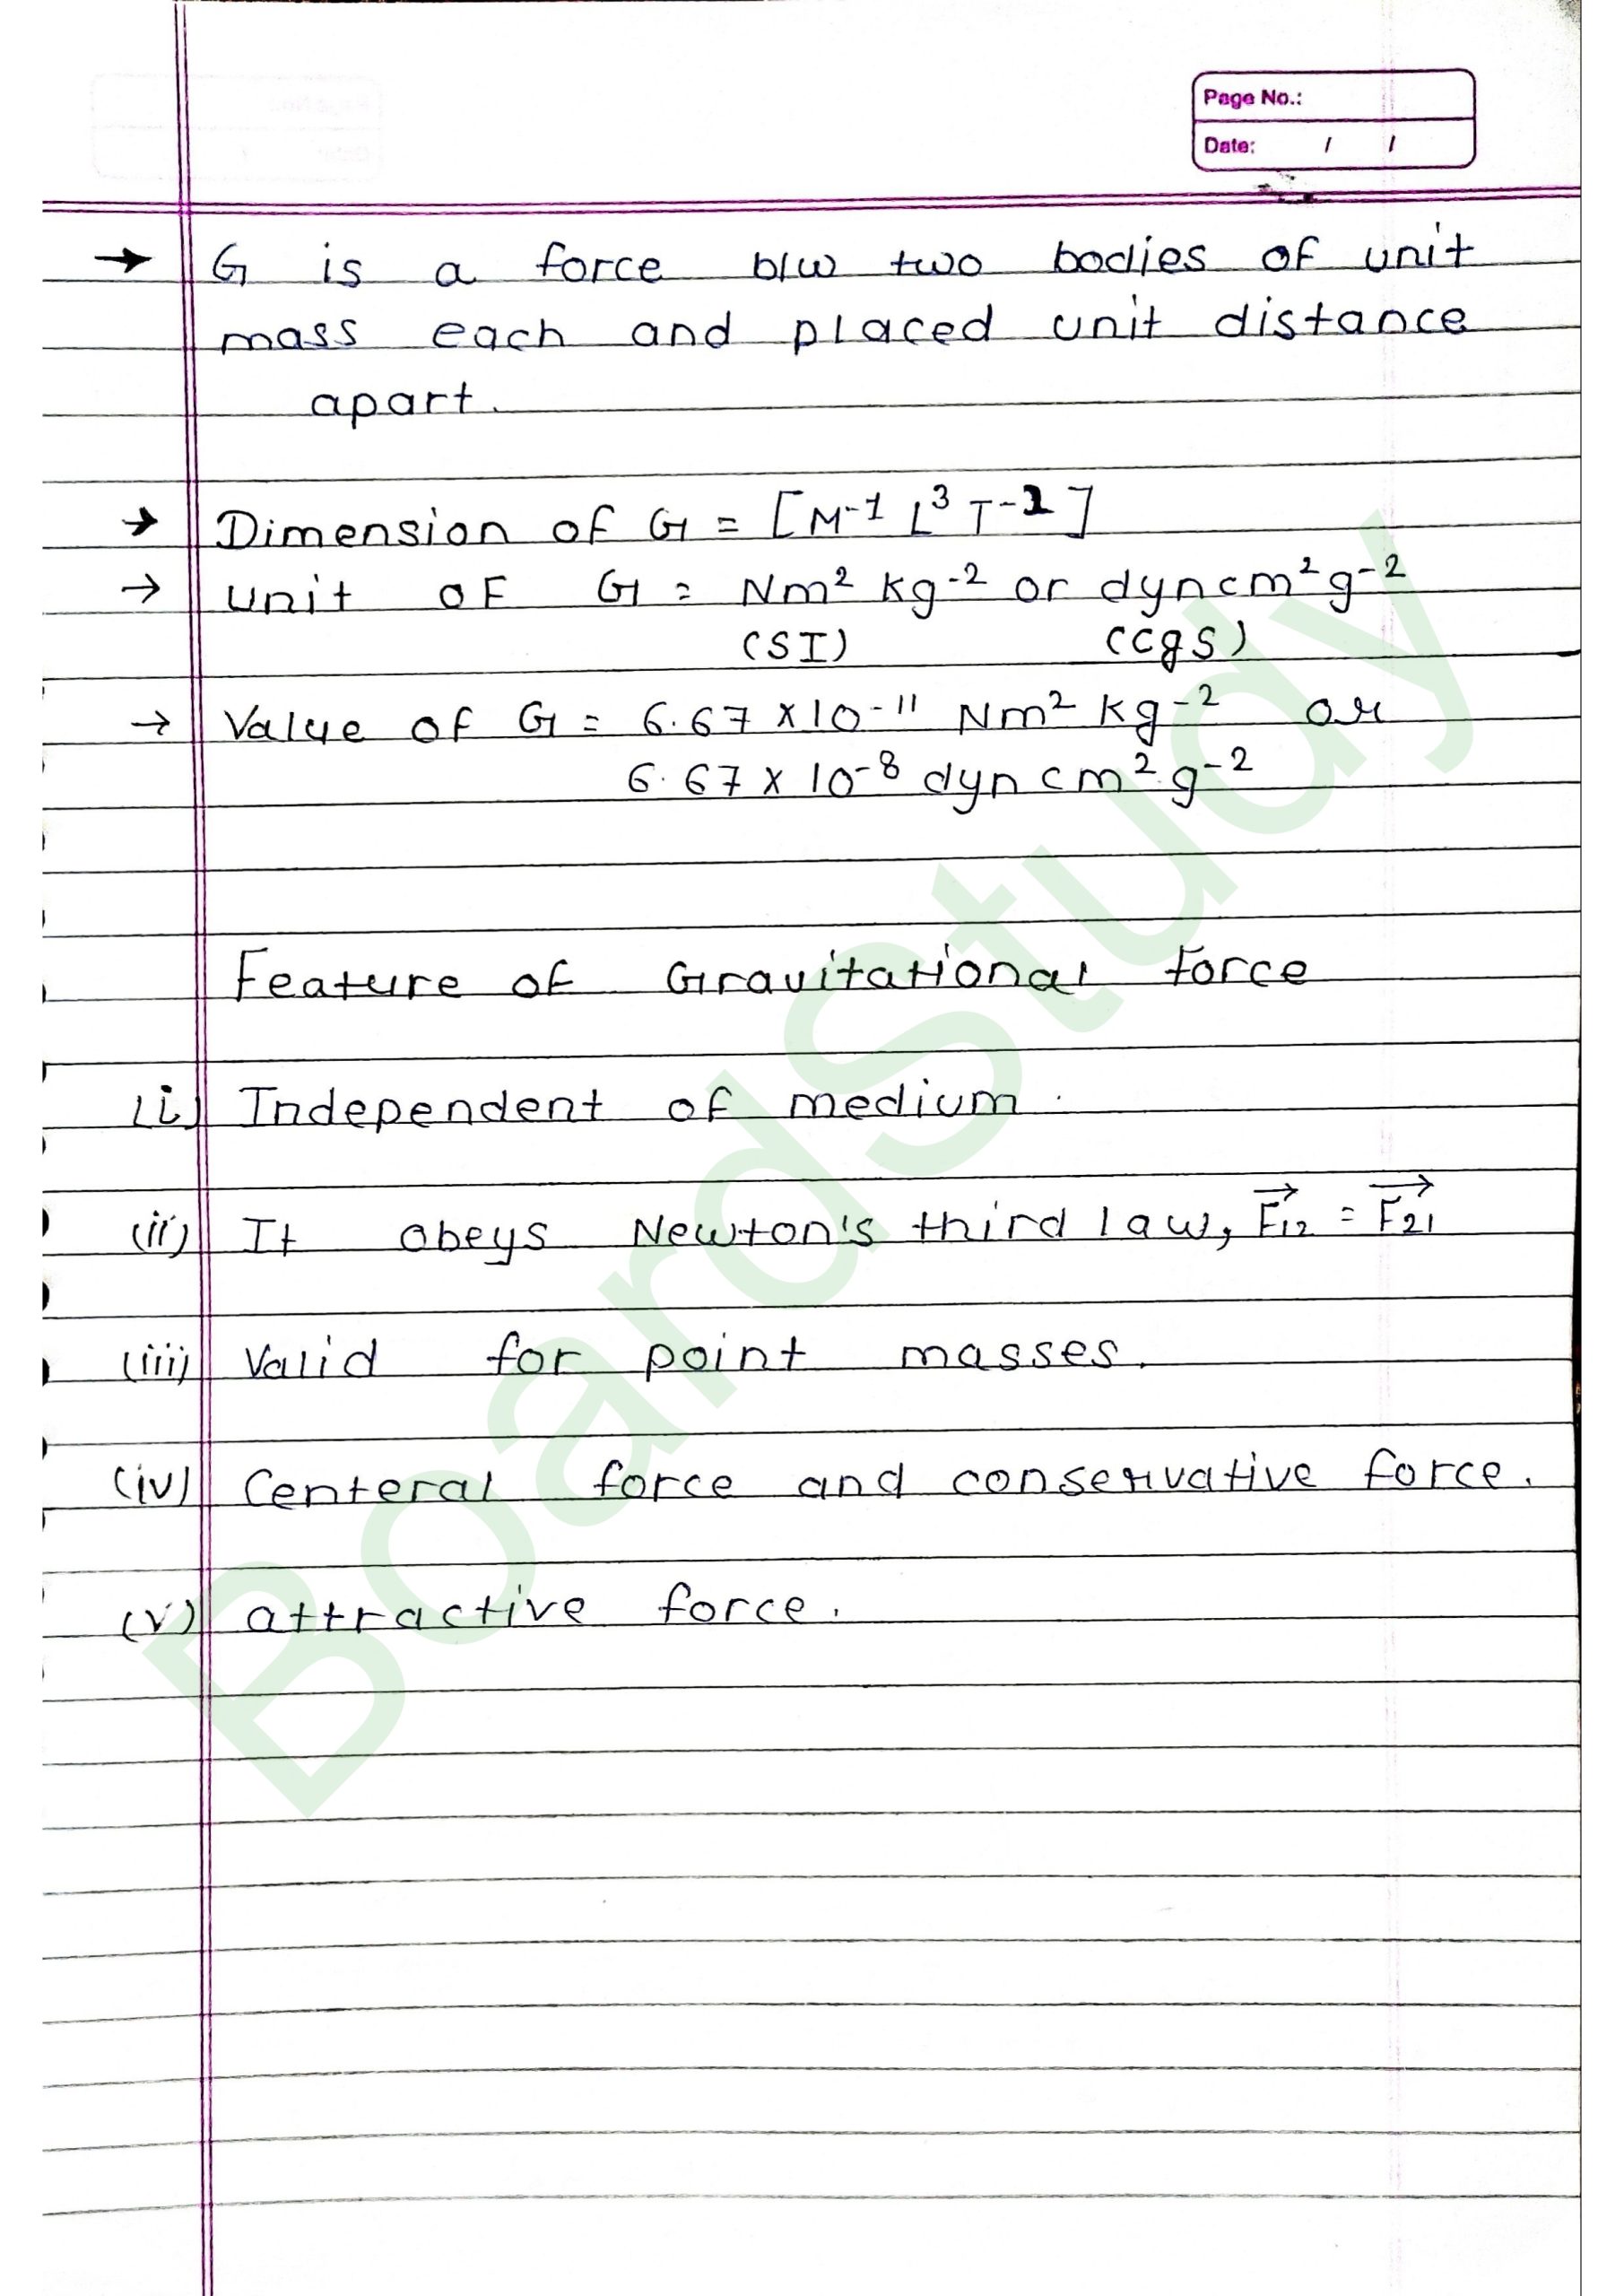 Page No.:
Date: / /
→ G is a force b/w two bodies of unit
mass each and placed unit distance
apart.
→ Dimension of G = [M⁻¹ L³ T⁻²]
→ unit of G = Nm² kg⁻² or dyn cm² g⁻²
(SI) (cgs)
→ Value of G = 6.67 x 10⁻¹¹ Nm² kg⁻² or
6.67 x 10⁻⁸ dyn cm² g⁻²
Feature of Gravitational force
(i) Independent of medium.
(ii) It obeys Newton's third law, F₁₂→ = F₂₁→
(iii) Valid for point masses.
(iv) Centeral force and conservative force.
(v) attractive force.
BoardStudy